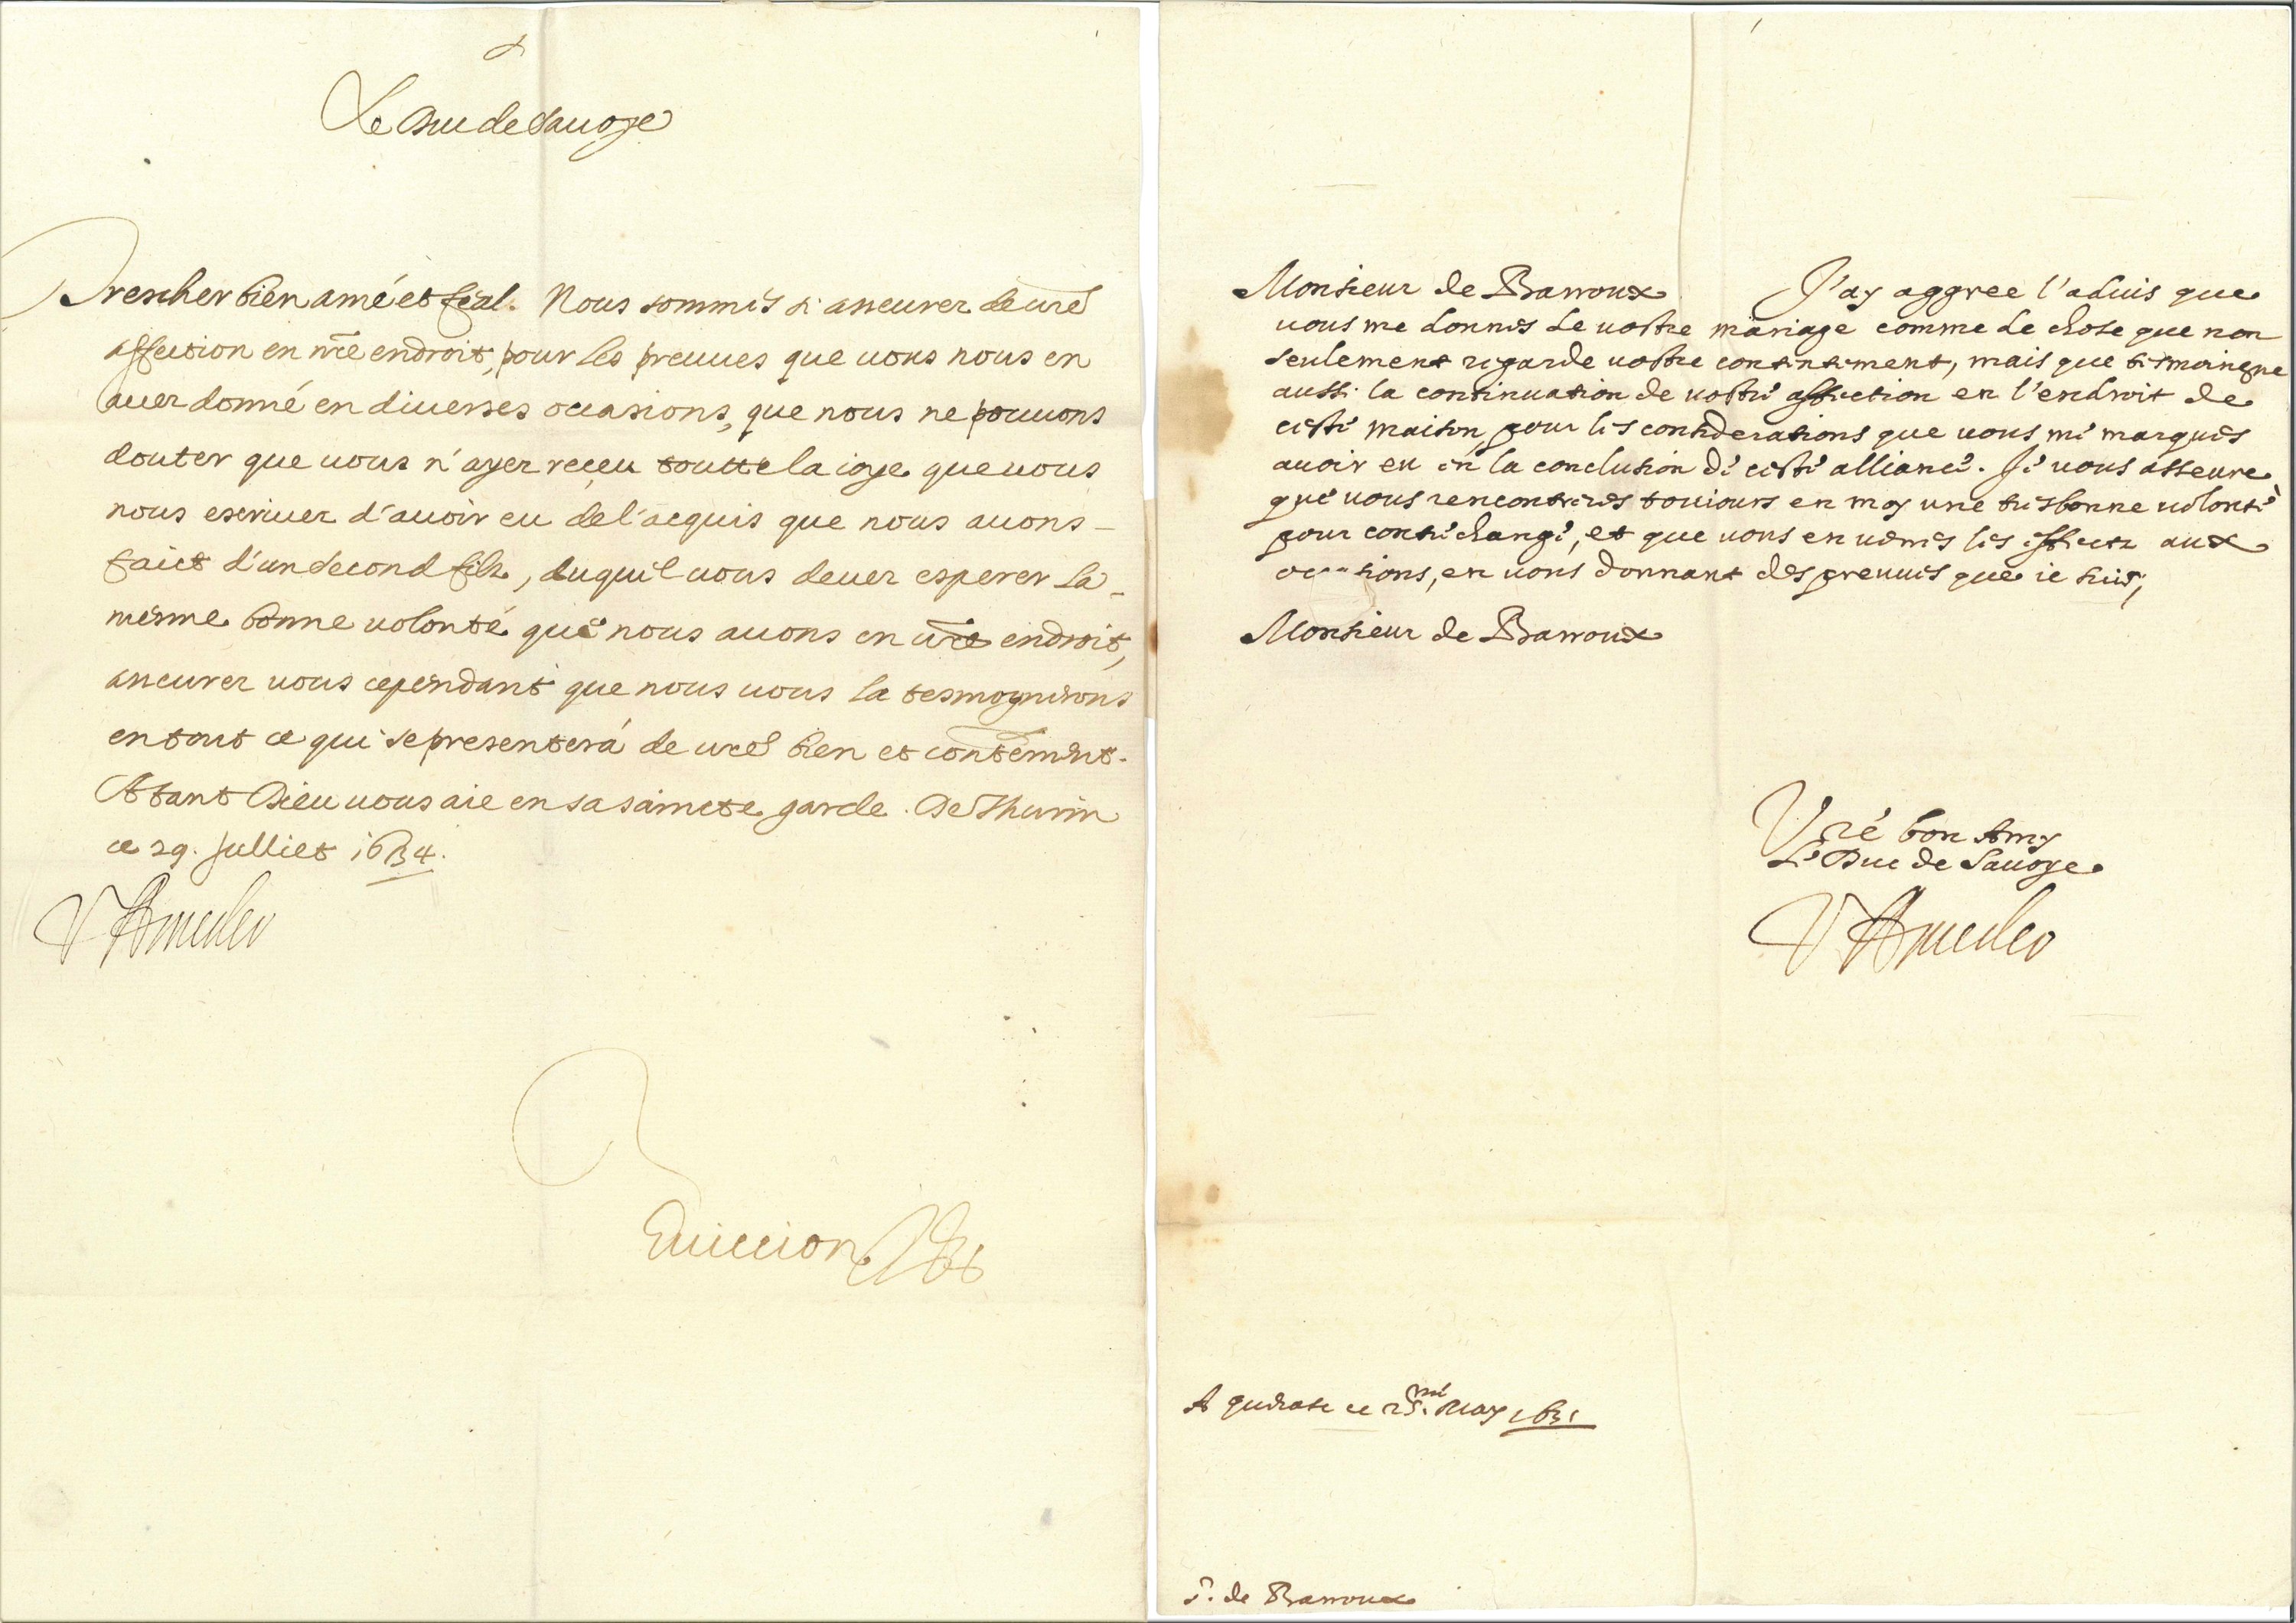 Le Duc de Sauoye
Trescher bien amé et feal. Nous sommes si asseurez de vre
affection en nre endroit, pour les preuues que uous nous en
auez donné en diuerses occasions, que nous ne pouuons
douter que uous n'ayez receu toutte la ioye que uous
nous escriuez d'auoir eu de l'acquis que nous auons
faict d'un second filz, duquel uous deuez esperer la
mesme bonne uolonté que nous auons en vre endroit,
asseurez uous cependant que nous uous la tesmognerons
en tout ce qui se presenterá de vre bien et contement.
Atant Dieu uous aie en sa saincte garde. De Thurin
ce 29. Julliet 1634.
V Amedeo
Monsieur de Barroux J'ay aggree l'aduis que
uous me donnes de uostre mariage comme de chose que non
seulement regarde uostre contentement, mais que tesmoingne
aussi la continuation de uostre affection en l'endroit de
ceste maison, pour les considerations que uous me marques
auoir eu en la conclusion de ceste alliance. Je uous asseure
que uous rencontreres touiours en moy une tresbonne uolonté
pour contrechange, et que uous en uerres les effectz aux
occasions, en uous donnant des preuues que ie suis,
Monsieur de Barroux
Vre bon Amy
Le Duc de Sauoye
V Amedeo
A ce 25.me May 1631
S. de Barroux